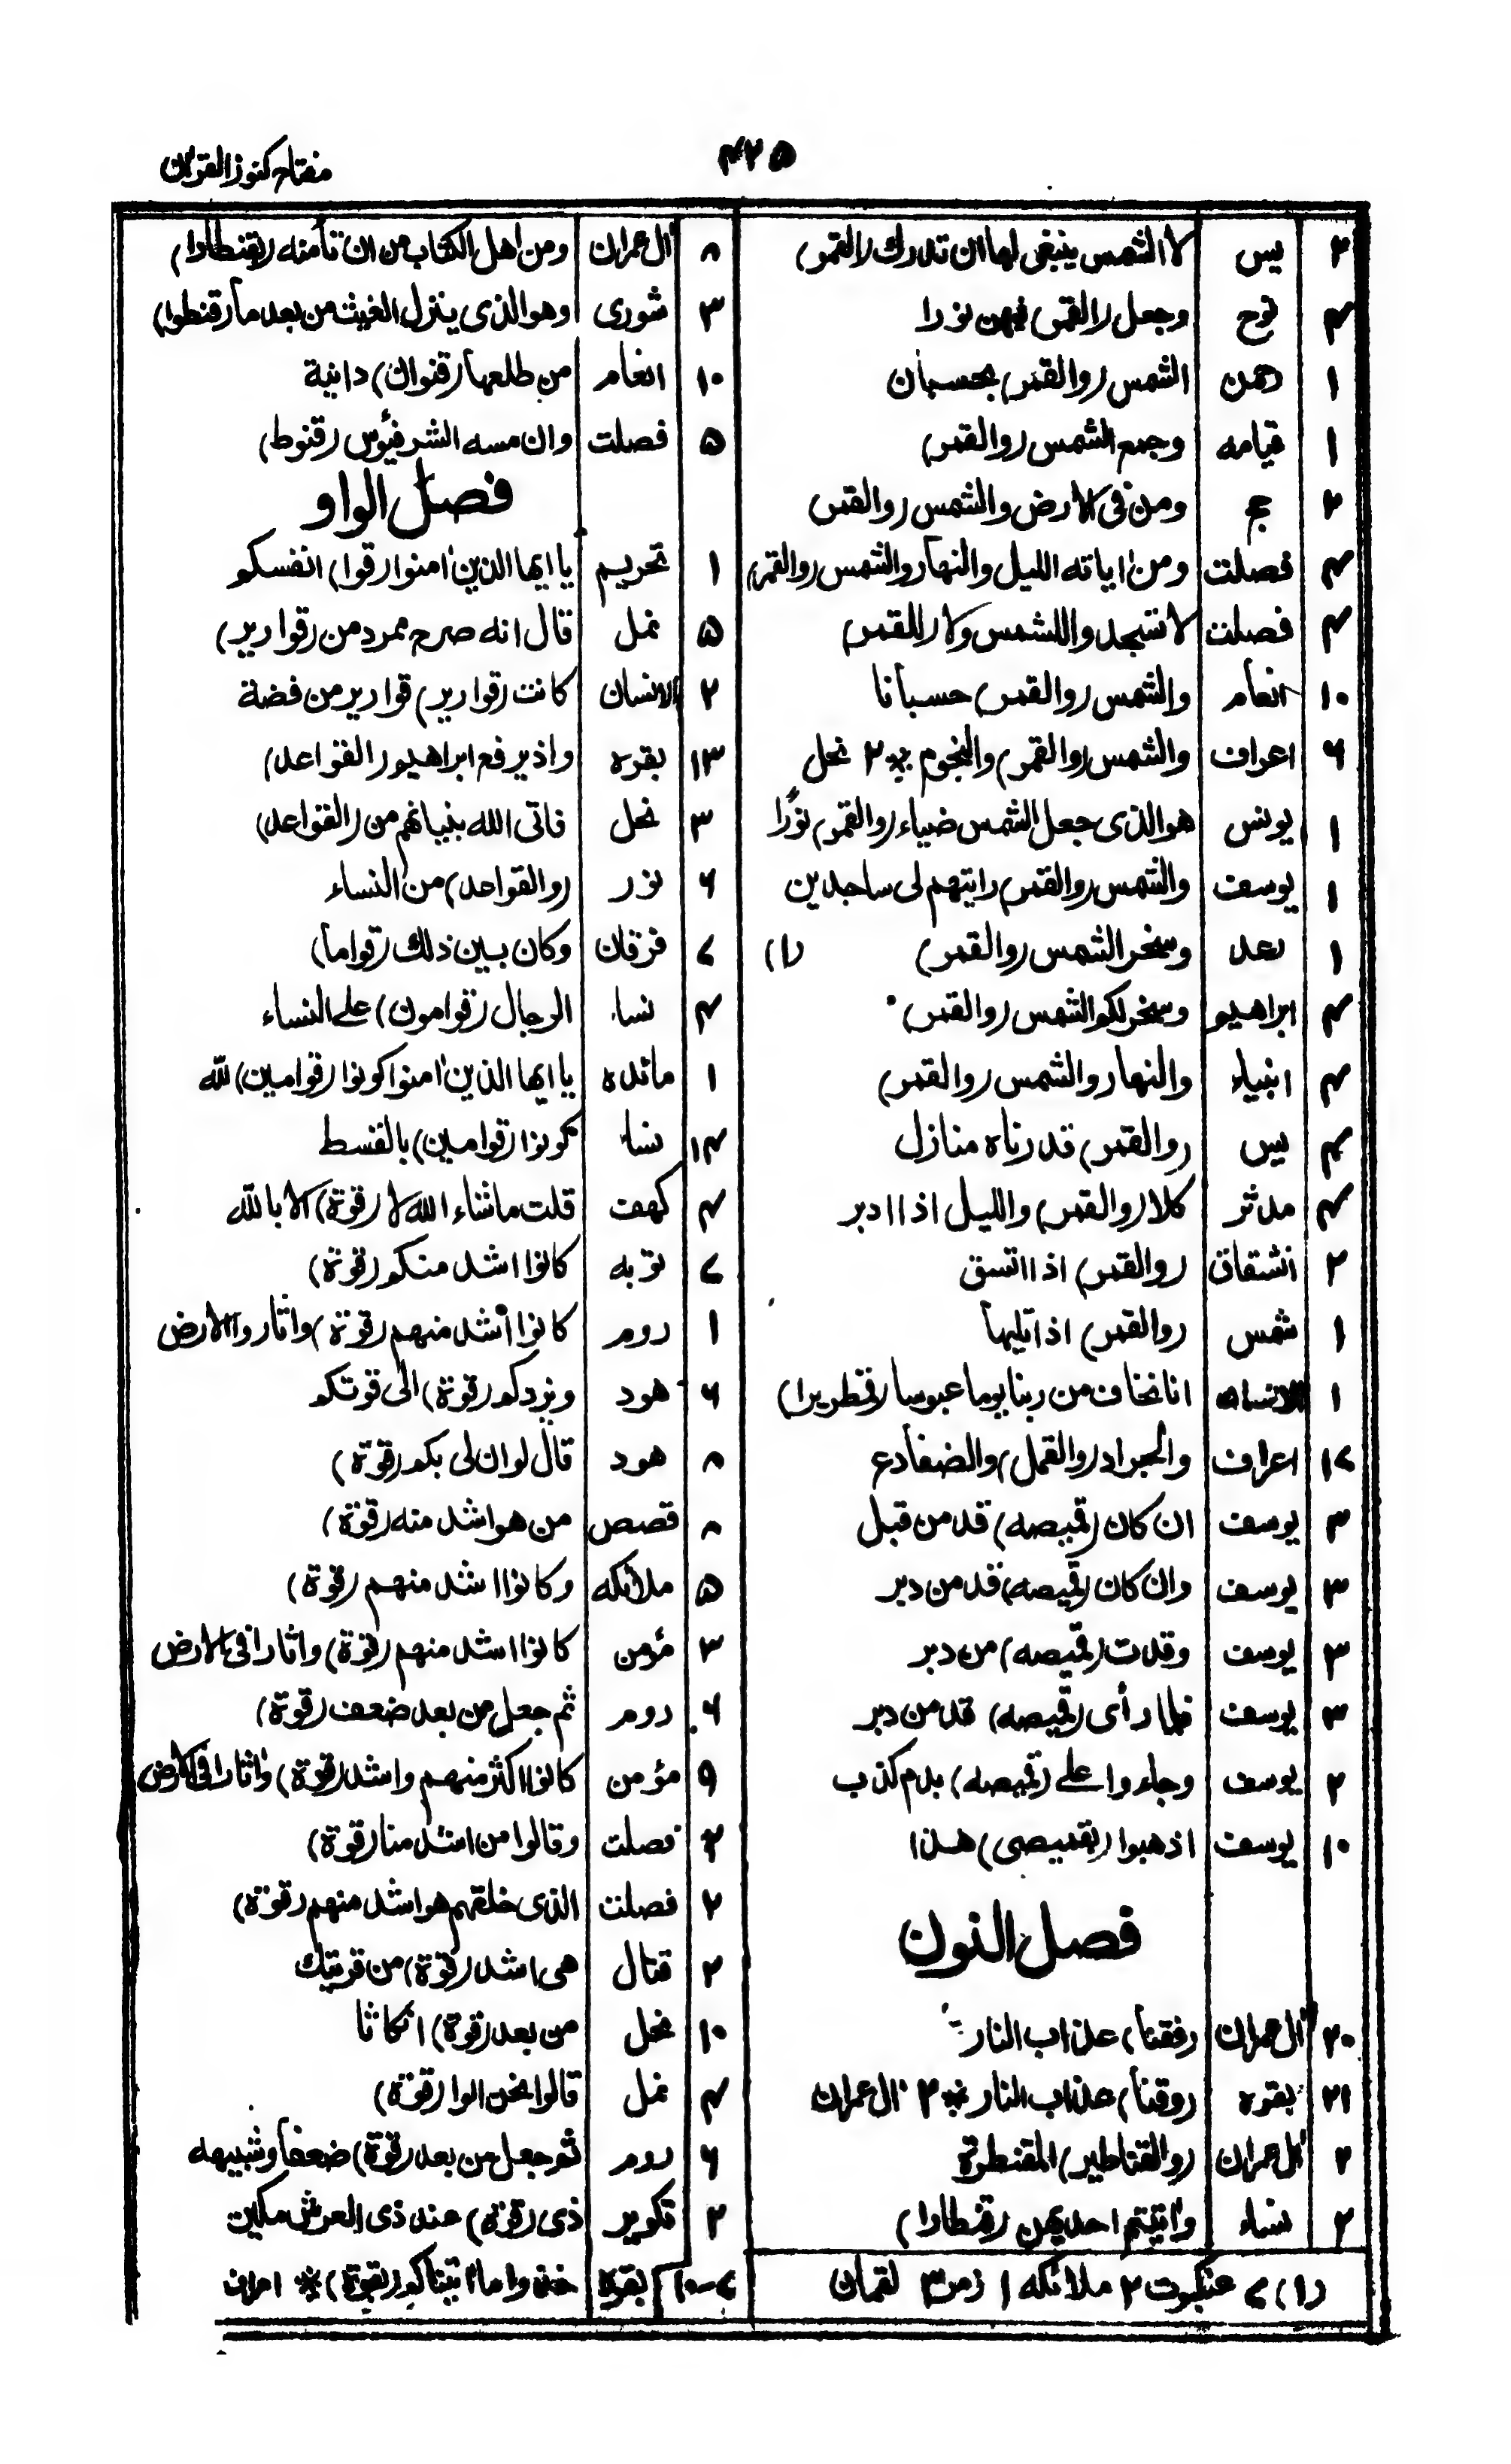 ۴۲۵
مفتاح كنوز القرآن
۳ يس لا الشمس ينبغى لها ان تدرك (القمر)
۴ نوح وجعل (القمر) فيهن نورا
۱ رحمن الشمس (والقمر) بحسبان
۱ قيامه وجمع الشمس (والقمر)
۲ حج ومن فى الارض والشمس (والقمر)
۴ فصلت ومن اياته الليل والنهار والشمس (والقمر)
۴ فصلت لا تسجدوا للشمس ولا (للقمر)
۱۰ انعام والشمس (والقمر) حسبانا
۶ اعراف والشمس (والقمر) والنجوم * ۲ نحل
۱ يونس هو الذى جعل الشمس ضياء (والقمر) نورًا
۱ يوسف والشمس (والقمر) رايتهم لى ساجدين
۱ رعد وسخر الشمس (والقمر) (۱)
۴ ابراهيم وسخر لكم الشمس (والقمر)
۴ انبياء والنهار والشمس (والقمر)
۴ يس (والقمر) قدرناه منازل
۴ مدثر كلا (والقمر) والليل اذا ادبر
۲ انشقاق (والقمر) اذا اتسق
۱ شمس (والقمر) اذا تليها
۱ الانسان انا نخاف من ربنا يوما عبوسا (قمطريرا)
۱۷ اعراف والجراد (والقمل) والضفادع
۳ يوسف ان كان (قميصه) قد من قبل
۳ يوسف وان كان (قميصه) قد من دبر
۳ يوسف وقدت (قميصه) من دبر
۳ يوسف فلما رأى (قميصه) قد من دبر
۲ يوسف وجاءوا على (قميصه) بدم كذب
۱۰ يوسف اذهبوا (بقميصى) هذا
فصل النون
۲۰ آل عمران (فقنا) عذاب النار
۲۱ بقره (وقنا) عذاب النار * ۲ آل عمران
۲ آل عمران (والقناطير) المقنطرة
۲ نساء واتيتم احديهن (قنطارا)
(۱) ۷ عنكبوت ۲ ملائكه ۱ زمر ۳ لقمان
۸ آل عمران ومن اهل الكتاب من ان تأمنه (بقنطارا)
۳ شورى وهو الذى ينزل الغيث من بعد ما (قنطوا)
۱۰ انعام من طلعها (قنوان) دانية
۵ فصلت وان مسه الشر فيؤس (قنوط)
فصل الواو
۱ تحريم يا ايها الذين امنوا (قوا) انفسكم
۵ نمل قال انه صرح ممرد من (قوارير)
۲ الانسان كانت (قوارير) قوارير من فضة
۱۳ بقره واذ يرفع ابراهيم (القواعد)
۳ نحل فاتى الله بنيانهم من (القواعد)
۶ نور (والقواعد) من النساء
۷ فرقان وكان بين ذلك (قواما)
۴ نساء الرجال (قوامون) على النساء
۱ مائده يا ايها الذين امنوا كونوا (قوامين) لله
۱۴ نساء كونوا (قوامين) بالقسط
۴ كهف قلت ماشاء الله لا (قوة) الا بالله
۷ توبه كانوا اشد منكم (قوة)
۱ روم كانوا اشد منهم (قوة) واثاروا الارض
۶ هود ويزدكم (قوة) الى قوتكم
۸ هود قال لو ان لى بكم (قوة)
۸ قصص من هو اشد منه (قوة)
۵ ملائكه وكانوا اشد منهم (قوة)
۳ مؤمن كانوا اشد منهم (قوة) واثارا فى الارض
۶ روم ثم جعل من بعد ضعف (قوة)
۹ مؤمن كانوا اكثر منهم واشد (قوة) واثارا فى الارض
۲ فصلت وقالوا من اشد منا (قوة)
۲ فصلت الذى خلقهم هو اشد منهم (قوة)
۲ قتال هى اشد (قوة) من قريتك
۱۰ نحل من بعد (قوة) انكاثا
۴ نمل قالوا نحن الوا (قوة)
۶ روم ثم جعل من بعد (قوة) ضعفا وشيبه
۲ تكوير ذى (قوة) عند ذى العرش مكين
۷-۱۰ بقره خذوا ما اتيناكم (بقوة) * اعراف